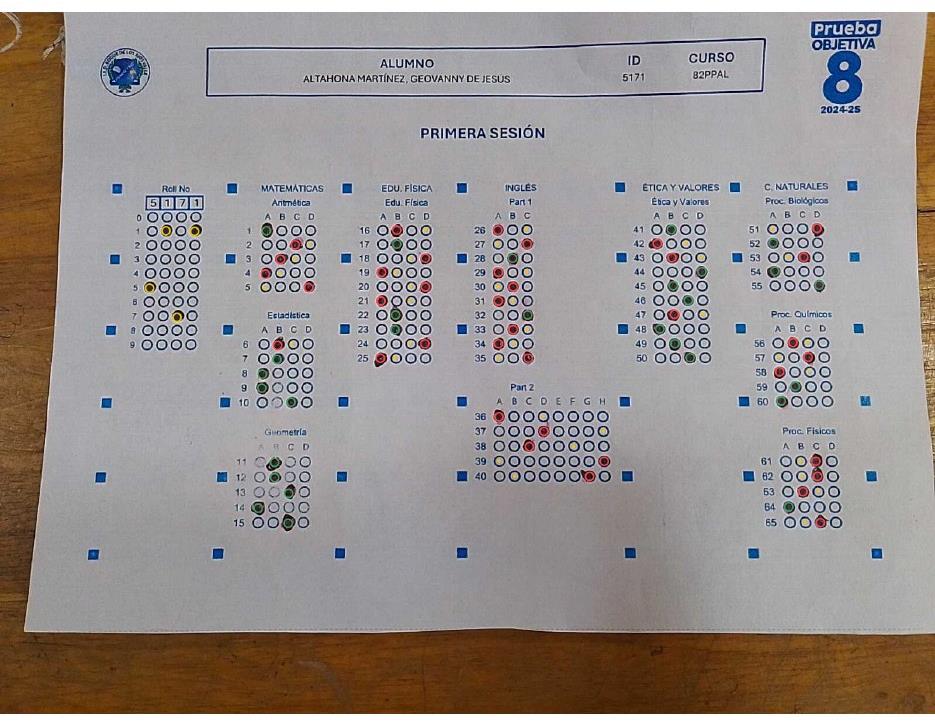 Prueba
OBJETIVA
8
2024-25
ALUMNO ID CURSO
ALTAHONA MARTÍNEZ, GEOVANNY DE JESÚS 5171 82PPAL
PRIMERA SESIÓN
Roll No
5 1 7 1
0
1
2
3
4
5
6
7
8
9
MATEMÁTICAS
Aritmética
A B C D
1
2
3
4
5
Estadística
A B C D
6
7
8
9
10
Geometría
A B C D
11
12
13
14
15
EDU. FÍSICA
Edu. Física
A B C D
16
17
18
19
20
21
22
23
24
25
INGLÉS
Part 1
A B C
26
27
28
29
30
31
32
33
34
35
Part 2
A B C D E F G H
36
37
38
39
40
ÉTICA Y VALORES
Ética y Valores
A B C D
41
42
43
44
45
46
47
48
49
50
C. NATURALES
Proc. Biológicos
A B C D
51
52
53
54
55
Proc. Químicos
A B C D
56
57
58
59
60
Proc. Físicos
A B C D
61
62
63
64
65